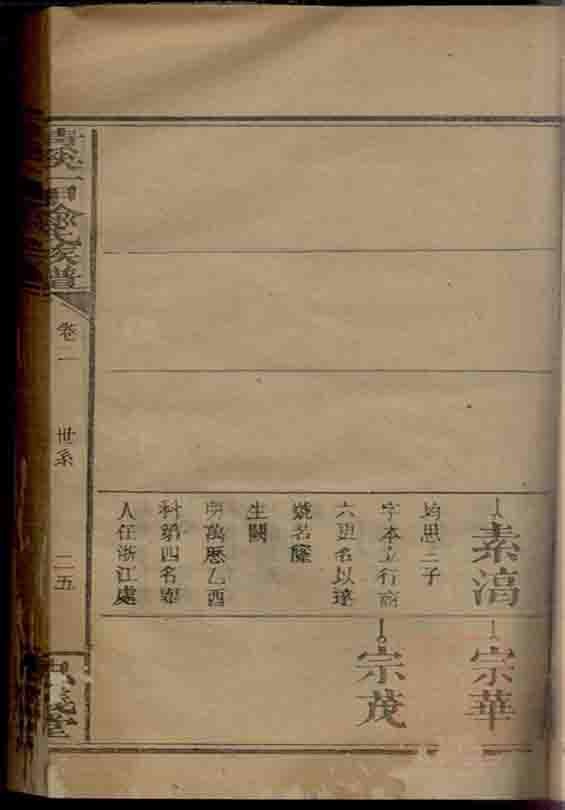 素滈
均思三子
字本立行商
六更名以達
號若薩
生闕
明萬厯乙酉
科第四名舉
人任浙江處
宗華
宗茂
氏族譜
卷二
世系
二五
堂